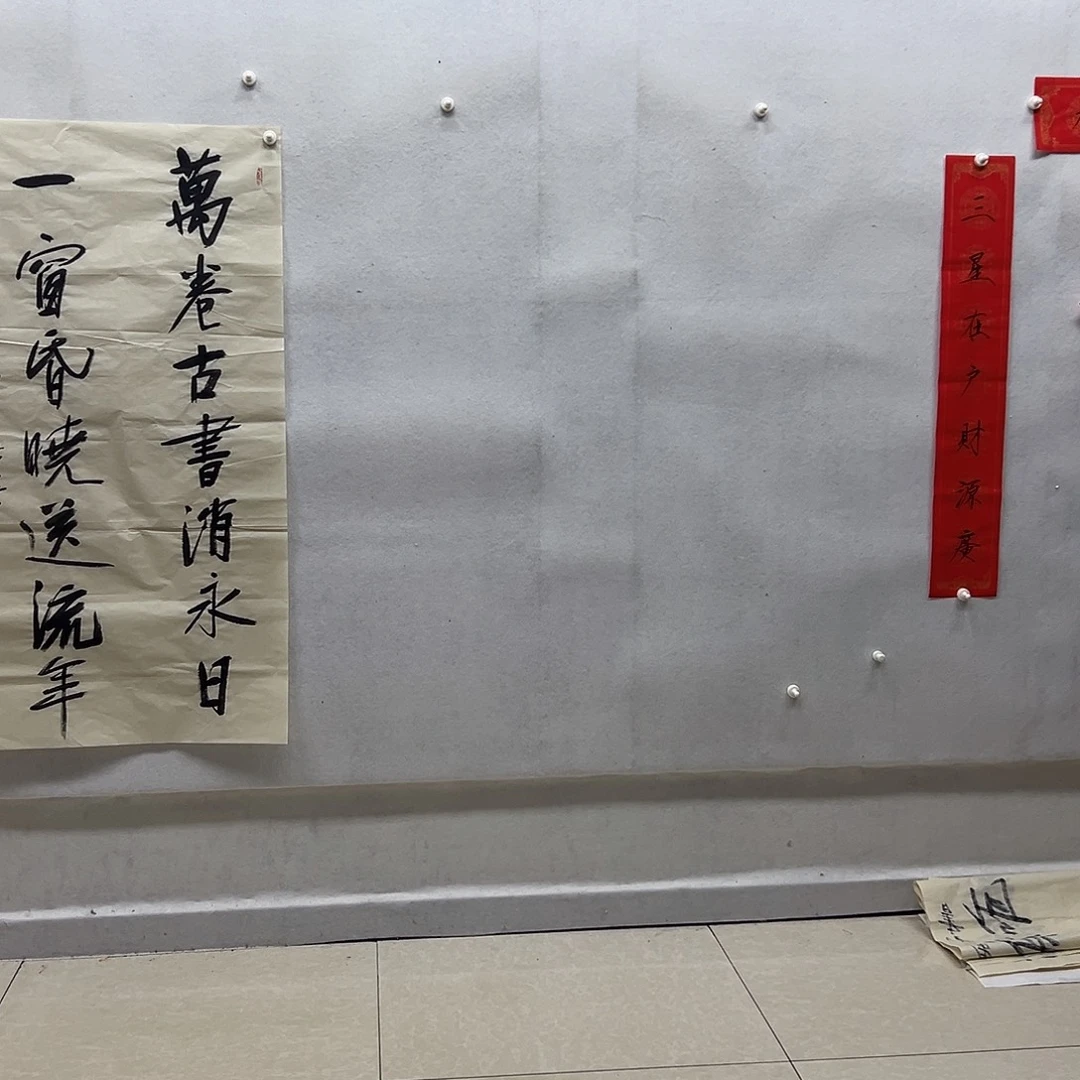 萬卷古書消永日
一窗昏曉送流年
三星在户財源廣